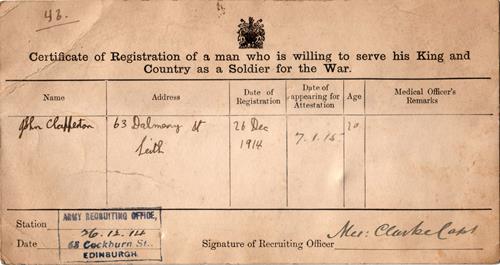 43.
Certificate of Registration of a man who is willing to serve his King and
Country as a Soldier for the War.
Name Address Date of Registration Date of appearing for Attestation Age Medical Officer's Remarks
John Clapperton 63 Dalmeny St 26 Dec 7.1.15 20
Leith 1914
Station ARMY RECRUITING OFFICE,
26.12.14
Date 68 Cockburn St., Signature of Recruiting Officer Clarke Capt
EDINBURGH.